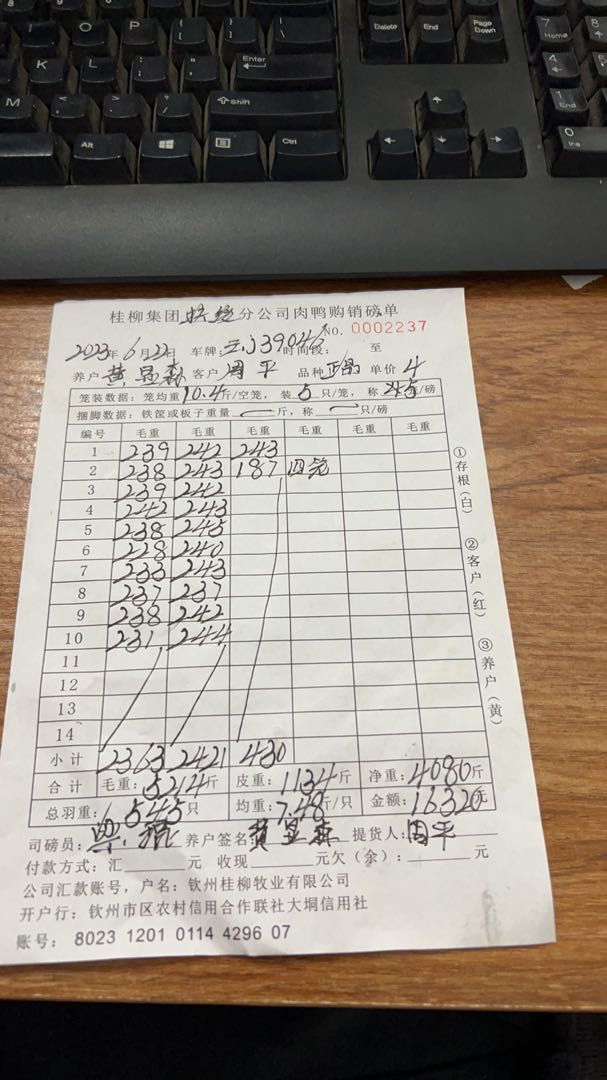 I O P { [ } ] | \ Delete End Page Down 7 Home
K L : ; " ' Enter 4
M < , > . ? / Shift 1 End
Alt Ctrl 0 Ins
桂柳集团 分公司肉鸭购销磅单
NO. 0002237
2023年6月22日 车牌: J39046 时间段: 至
养户 黄显森 客户 周平 品种 单价 4
笼装数据: 笼均重 10.4 斤/空笼, 装 5 只/笼, 称 5笼/磅
捆脚数据: 铁筐或板子重量 一 斤, 称 一 只/磅
编号 毛重 毛重 毛重 毛重 毛重 毛重
1 239 242 243
2 238 243 187 四笼
3 239 242
4 242 243
5 238 245
6 228 240
7 233 243
8 237 237
9 238 242
10 231 244
11
12
13
14
小计 2363 2421 430
合计 毛重: 5214斤 皮重: 1134斤 净重: 4080斤
总羽重: 545只 均重: 7.48斤/只 金额: 16320元
司磅员: 养户签名 黄显森 提货人: 周平
付款方式: 汇 元 收现 元欠(余): 元
公司汇款账号, 户名: 钦州桂柳牧业有限公司
开户行: 钦州市区农村信用合作联社大垌信用社
账号: 8023 1201 0114 4296 07
①存根(白)
②客户(红)
③养户(黄)